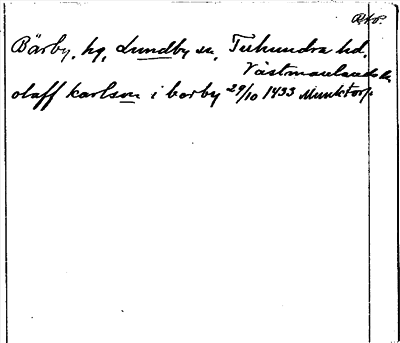 Bärby, hg, Lundby sn, Tuhundra hd.
Västmanlands l.
olaff karlson i barby 29/10 1433 Munktorp